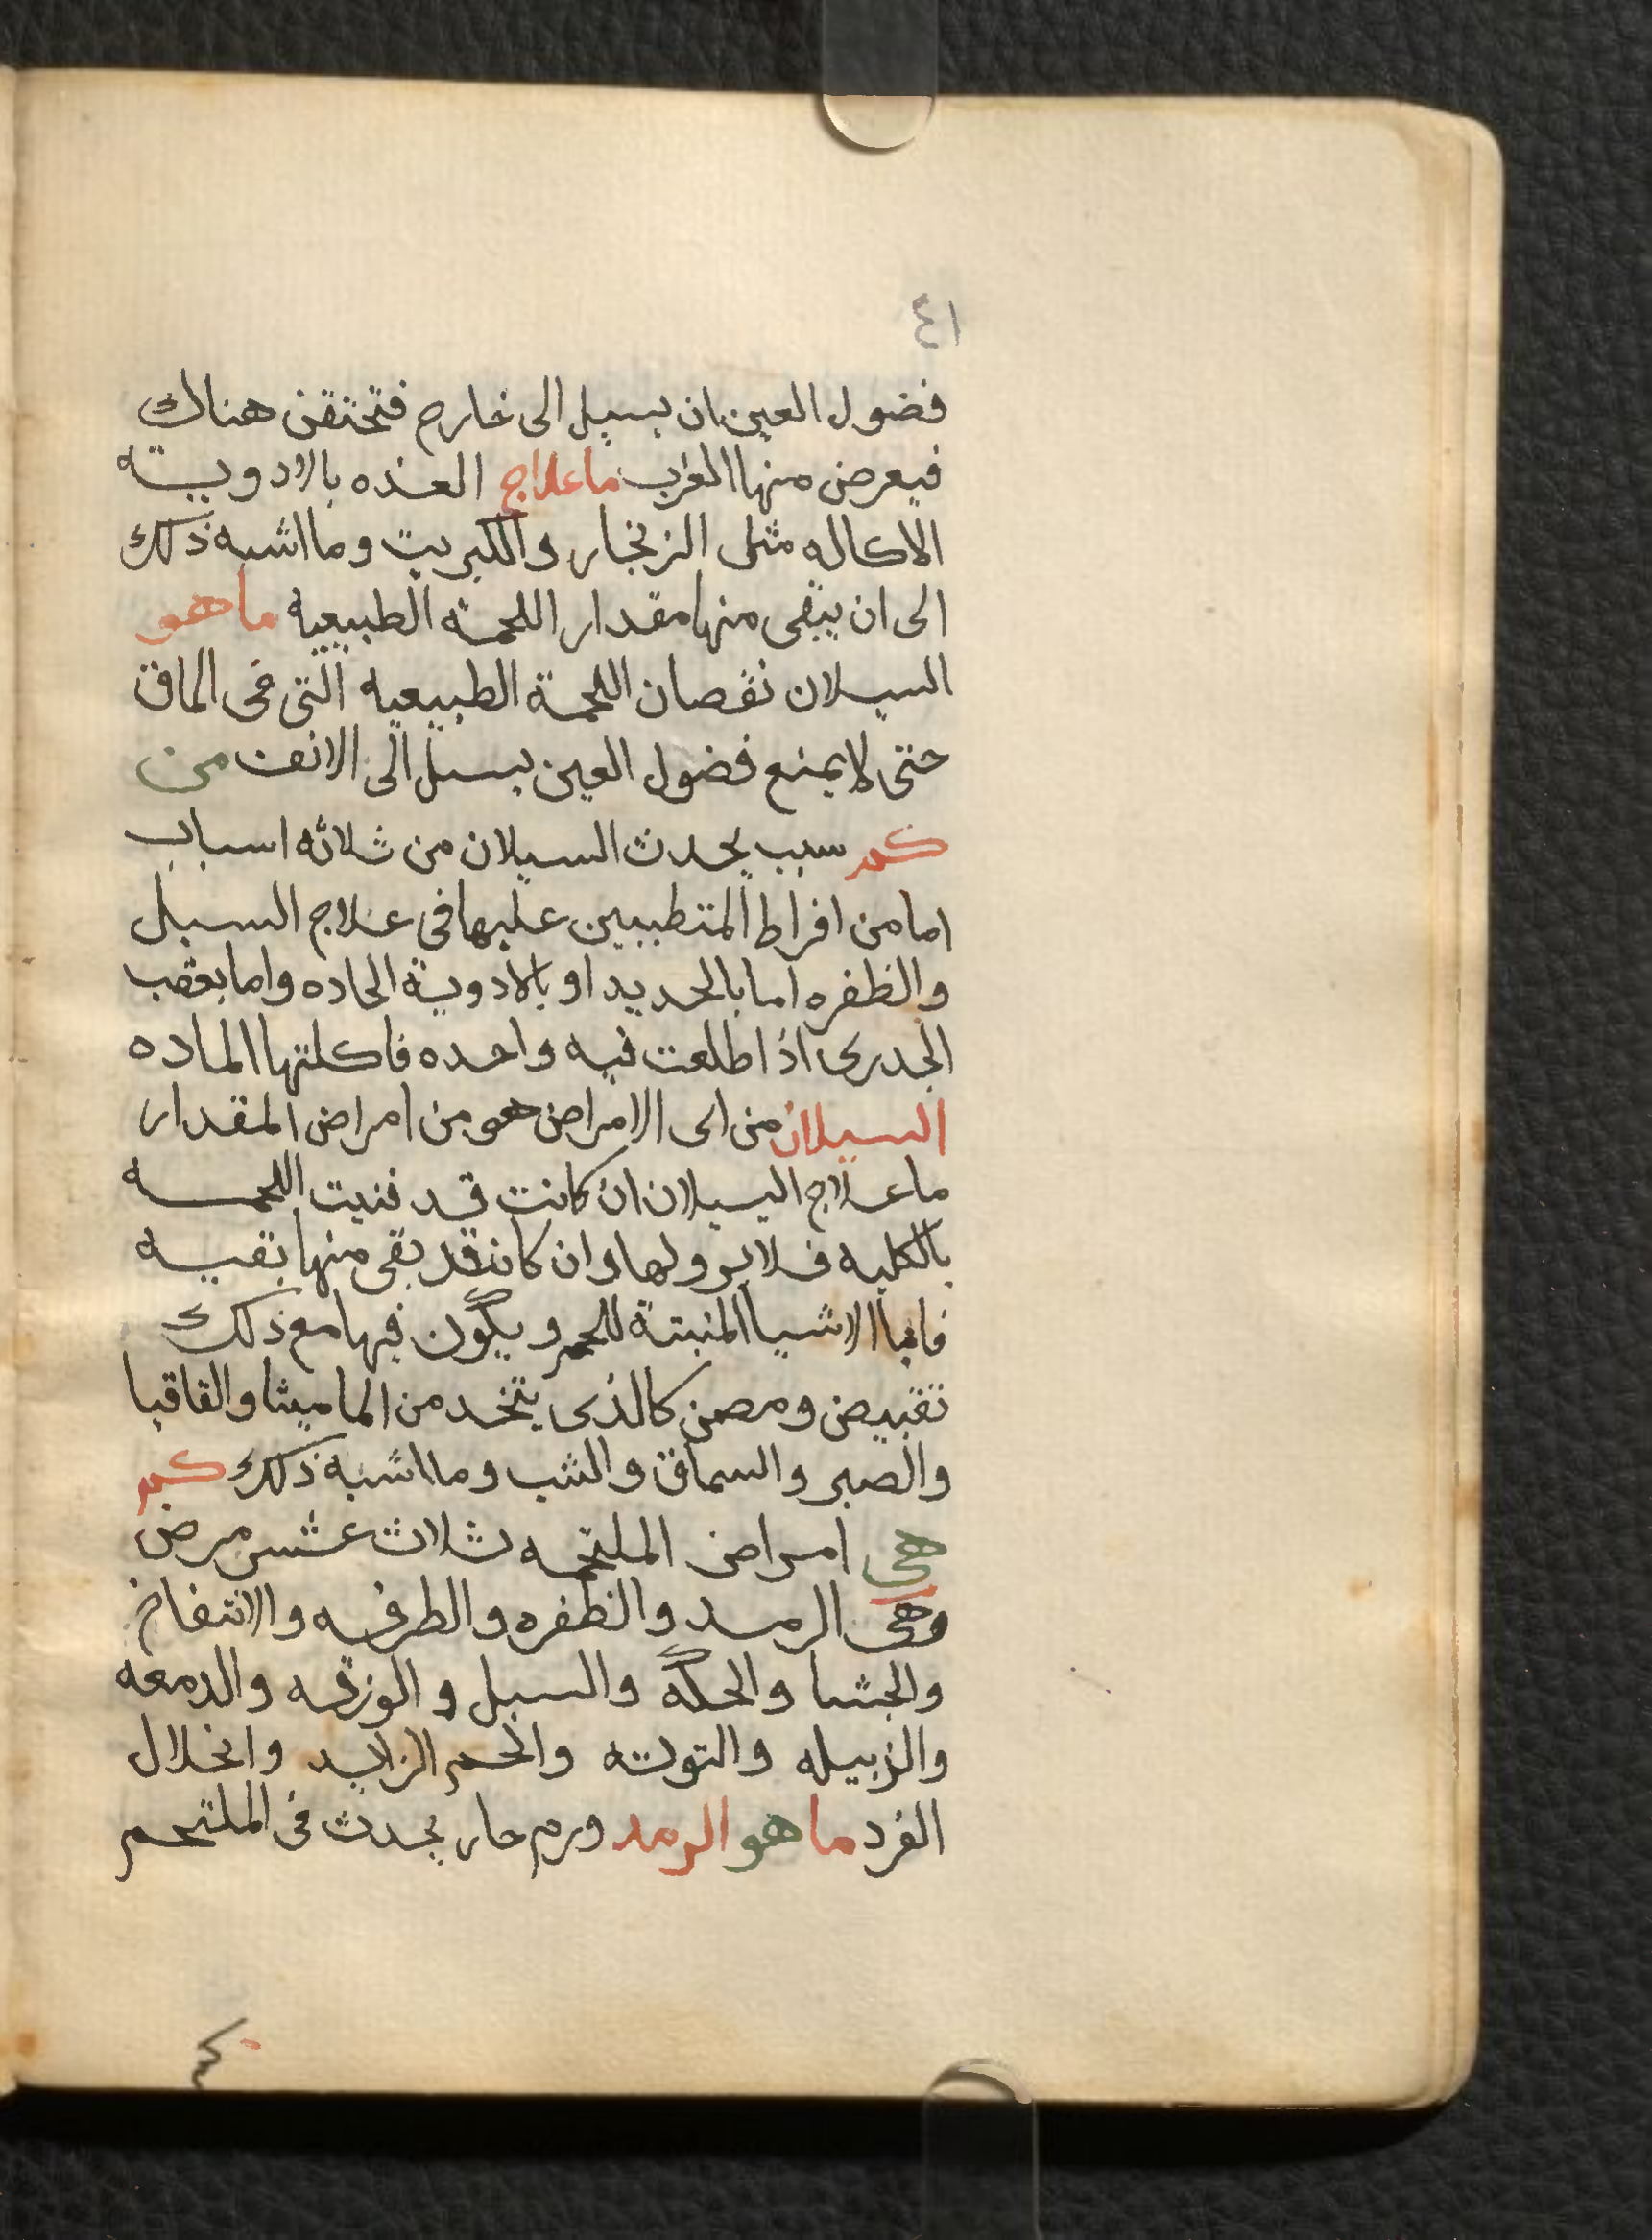 ٤١
فضول العين ان يسيل الى خارج فتختقن هناك
فيعرض منها الغرب ما علاج الغده بالادوية
الاكاله مثل الزنجار والكبريت وما اشبه ذلك
الى ان يبقى منها مقدار اللحمة الطبيعيه ما هو
السيلان نقصان اللحمة الطبيعيه التى فى الماق
حتى لا يمنع فضول العين يسيل الى الانف من
كم سبب يحدث السيلان من ثلاثه اسباب
اما من افراط المتطببين عليها فى علاج السبل
والظفره اما بالحديد او بالادوية الحاده واما بعقب
الجدرى اذا طلعت فيه واحده فاكلتها الماده
السيلان من اى الامراض هو من امراض المقدار
ما علاج السيلان ان كانت قد فنيت اللحمه
بالكليه فلا برو لها وان كان قد بقى منها بقيه
الاشيا المنبتة للحم ويكون فيها مع ذلك
تقبيض ومصن كالذى يتخد من الماميثا والقاقيا
والصبر والسماق والشب وما اشبه ذلك كم
هى امراض الملتحمه ثلاث عشر مرض
وهى الرمد والظفره والطرفه والانتفاخ
والجشا والحكة والسبل والوزقه والدمعه
والزبيله والتوته والحم الزايد وانخلال
الفرد ما هو الرمد ورم حار يحدث فى الملتحم